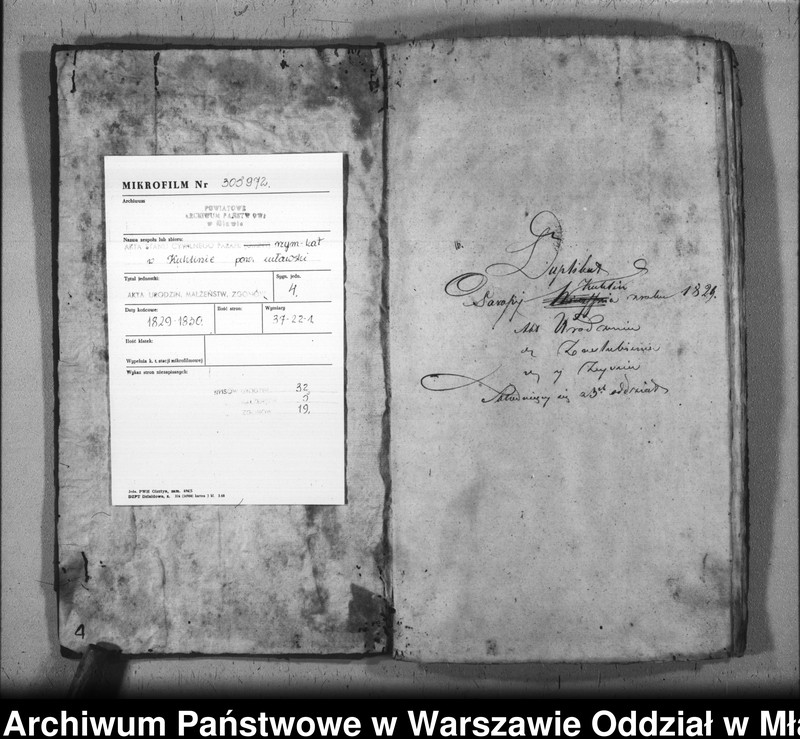 MIKROFILM Nr 305972.
Archiwum
POWIATOWE
ARCHIWUM PAŃSTWOWE
w Mławie
Nazwa zespołu lub zbioru:
AKTA STANU CYWILNEGO PARAFII rzym-kat
w Kuklinie pow. mławski
Tytuł jednostki:
AKTA URODZIN, MAŁŻEŃSTW, ZGONÓW
Sygn. jedn.
4.
Daty końcowe:
1829-1830.
Ilość stron:
Wymiary
37-22-1
Ilość klatek:
Wypełnia k. t. stacji mikrofilmowej
Wykaz stron niezapisanych:
32
5
19.
4
Duplikat
Parafij Kuklin z roku 1829.
Akt Urodzenia
Zaślubienia
y Zeyścia
Składaiący się z 3ch oddziałów
Archiwum Państwowe w Warszawie Oddział w Mła